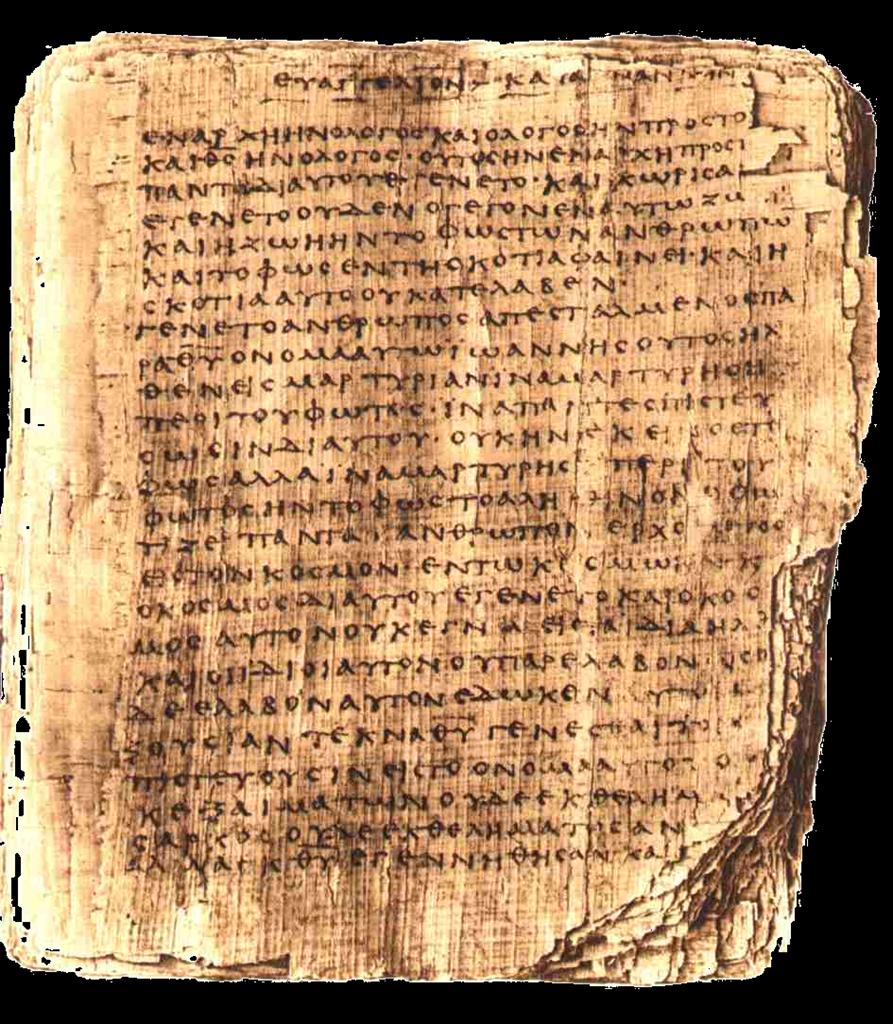 ΕΥΑΓΓΕΛΙΟΝ ΚΑΤΑ ΙΩΑΝΝΗΝ
ΕΝΑΡΧΗΗΝΟΛΟΓΟΣΚΑΙΟΛΟΓΟΣΗΝΠΡΟΣΤΟ
ΚΑΙΘΣΗΝΟΛΟΓΟΣ·ΟΥΤΟΣΗΝΕΝΑΡΧΗΠΡΟΣΤ
ΠΑΝΤΑΔΙΑΥΤΟΥΕΓΕΝΕΤΟ·ΚΑΙΧΩΡΙΣΑ
ΕΓΕΝΕΤΟΟΥΔΕΝΟΓΕΓΟΝΕΝΑΥΤΩΖΩ
ΚΑΙΗΖΩΗΗΝΤΟΦΩΣΤΩΝΑΝΘΡΩΠΩ
ΚΑΙΤΟΦΩΣΕΝΤΗΣΚΟΤΙΑΦΑΙΝΕΙ·ΚΑΙΗ
ΣΚΟΤΙΑΑΥΤΟΟΥΚΑΤΕΛΑΒΕΝ·
ΓΕΝΕΤΟΑΝΘΡΩΠΟΣΑΠΕΣΤΑΛΜΕΝΟΣΠΑ
ΡΑΘΥΟΝΟΜΑΑΥΤΩΙΩΑΝΝΗΣΟΥΤΟΣΗΛ
ΘΕΝΕΙΣΜΑΡΤΥΡΙΑΝΙΝΑΜΑΡΤΥΡΗΣΗ
ΠΕΡΙΤΟΥΦΩΤΟΣ·ΙΝΑΠΑΝΤΕΣΠΙΣΤΕΥ
ΣΩΣΙΝΔΙΑΥΤΟΥ·ΟΥΚΗΝΕΚΕΙΝΟΣΤΟ
ΦΩΣΑΛΛΑΙΝΑΜΑΡΤΥΡΗΣΗΠΕΡΙΤΟΥ
ΦΩΤΟΣΗΝΤΟΦΩΣΤΟΑΛΗΘΙΝΟΝΟΦΩ
ΤΙΖΕΙΠΑΝΤΑΑΝΘΡΩΠΟΝΕΡΧΟΜΕΝΟΝ
ΕΙΣΤΟΝΚΟΣΜΟΝ·ΕΝΤΩΚΟΣΜΩΗΝΚΑΙ
ΟΚΟΣΜΟΣΔΙΑΥΤΟΥΕΓΕΝΕΤΟΚΑΙΟΚΟΣ
ΜΟΣΑΥΤΟΝΟΥΚΕΓΝΩΕΙΣΤΑΙΔΙΑΗΛΘ
ΚΑΙΟΙΙΔΙΟΙΑΥΤΟΝΟΥΠΑΡΕΛΑΒΟΝ·ΟΣΟΙ
ΔΕΕΛΑΒΟΝΑΥΤΟΝΕΔΩΚΕΝΑΥΤΟΙΣΕ
ΞΟΥΣΙΑΝΤΕΚΝΑΘΥΓΕΝΕΣΘΑΙΤΟΙΣ
ΠΙΣΤΕΥΟΥΣΙΝΕΙΣΤΟΟΝΟΜΑΑΥΤΟΥΟ
ΚΕΞΑΙΜΑΤΩΝΟΥΔΕΕΚΘΕΛΗΜ
ΣΑΡΚΟΣΟΥΔΕΕΚΘΕΛΗΜΑΤΟΣΑΝ
ΑΛΛΑΕΚΘΥΕΓΕΝΝΗΘΗΣΑΝΚΑΙ